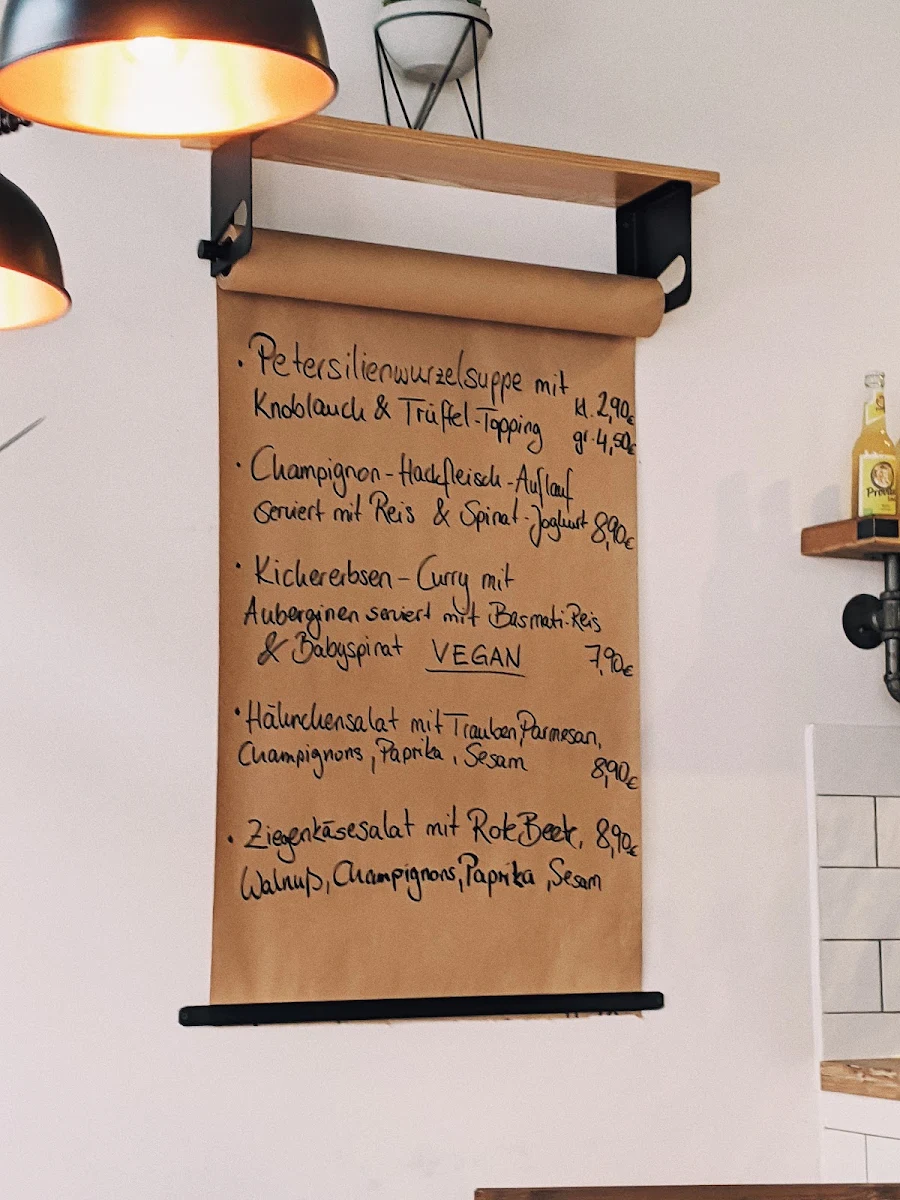 · Petersilienwurzelsuppe mit kl. 2,90€
Knoblauch & Trüffel-Topping gr. 4,50€
· Champignon-Hackfleisch-Auflauf
serviert mit Reis & Spinat-Joghurt 8,90€
· Kichererbsen-Curry mit
Auberginen serviert mit Basmati-Reis
& Babyspinat VEGAN 7,90€
· Hähnchensalat mit Trauben, Parmesan,
Champignons, Paprika, Sesam 8,90€
· Ziegenkäsesalat mit Rote Beete, 8,90€
Walnuß, Champignons, Paprika, Sesam